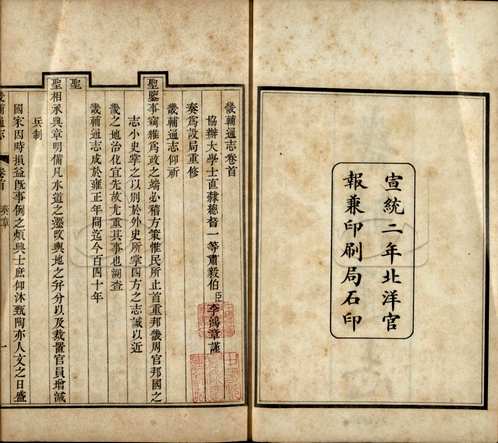 宣統二年北洋官
報兼印刷局石印
畿輔通志卷首
協辦大學士直隸總督一等肅毅伯臣李鴻章謹
奏爲設局重修
畿輔通志仰祈
聖鑒事竊維爲政之端必稽方策惟民所止首重邦畿周官邦國之
志小史掌之以別於外史所掌四方之志誠以近
畿之地治化宜先故尤重其事也調查
畿輔通志成於雍正年間迄今百四十年
聖
聖相承典章明備凡水道之遷改輿地之幷分以及裁置官員增減
兵制
國家因時損益旣事例之頻興士庶仰沐甄陶亦人文之日盛
畿輔通志 卷首 奏章 一